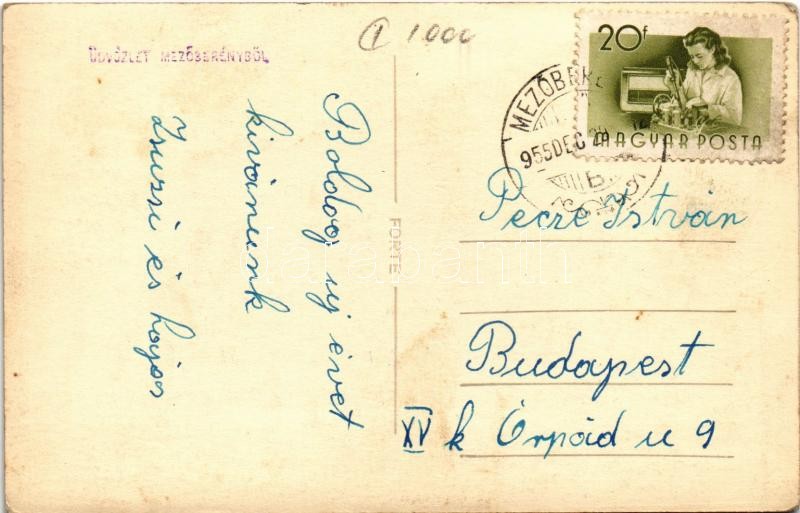 ① 1000
ÜDVÖZLET MEZŐBERÉNYBŐL
Boldog uj évet
kivánunk
Zsuzsi és Lajos
FORTE
20f
MAGYAR POSTA
MEZŐBERÉ
955DEC
B
Pecze István
Budapest
XV k Árpád u 9